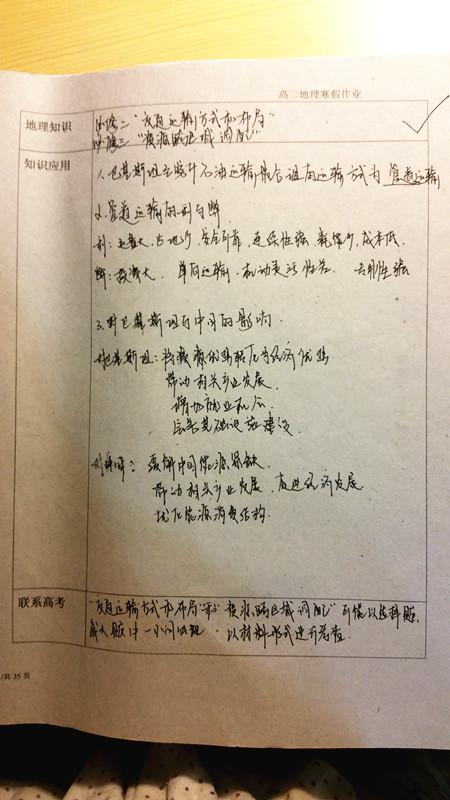 高二地理寒假作业
地理知识
必修二"交通运输方式和布局"
必修三"资源跨区域调配"
知识应用
1.巴基斯坦主要升石油运输最合理的运输方式为 管道运输
2.管道运输的利与弊
利:运量大,占地少,安全可靠,连续性强 耗储少,成本低.
弊:投资大. 单向运输.机动灵活性差. 专用性强
3.对巴基斯坦与中国的影响.
对巴基斯坦:将资源优势转化为经济优势
带动相关产业发展.
增加就业机会.
完善基础设施建设
对中国:缓解中国能源紧缺.
带动相关产业发展,促进经济发展
优化能源消费结构.
联系高考
"交通运输方式和布局"和"资源跨区域调配"可能以选择题
或大题中一小问出现.以材料形式进行考查.
/共 35 页